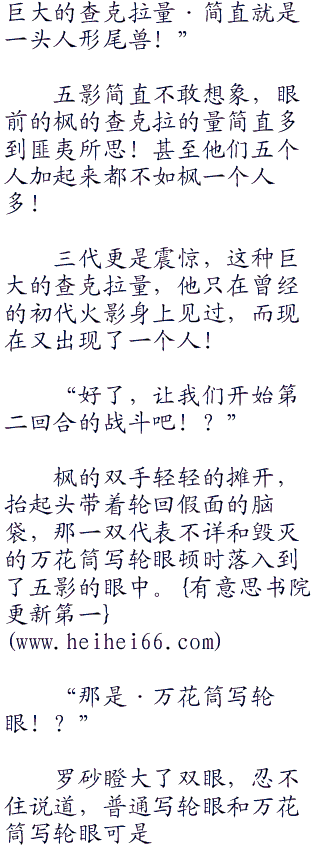 巨大的查克拉量·简直就是
一头人形尾兽！”
五影简直不敢想象，眼
前的枫的查克拉的量简直多
到匪夷所思！甚至他们五个
人加起来都不如枫一个人
多！
三代更是震惊，这种巨
大的查克拉量，他只在曾经
的初代火影身上见过，而现
在又出现了一个人！
“好了，让我们开始第
二回合的战斗吧！？”
枫的双手轻轻的摊开，
抬起头带着轮回假面的脑
袋，那一双代表不详和毁灭
的万花筒写轮眼顿时落入到
了五影的眼中。{有意思书院
更新第一}
(www.heihei66.com)
“那是·万花筒写轮
眼！？”
罗砂瞪大了双眼，忍不
住说道，普通写轮眼和万花
筒写轮眼可是